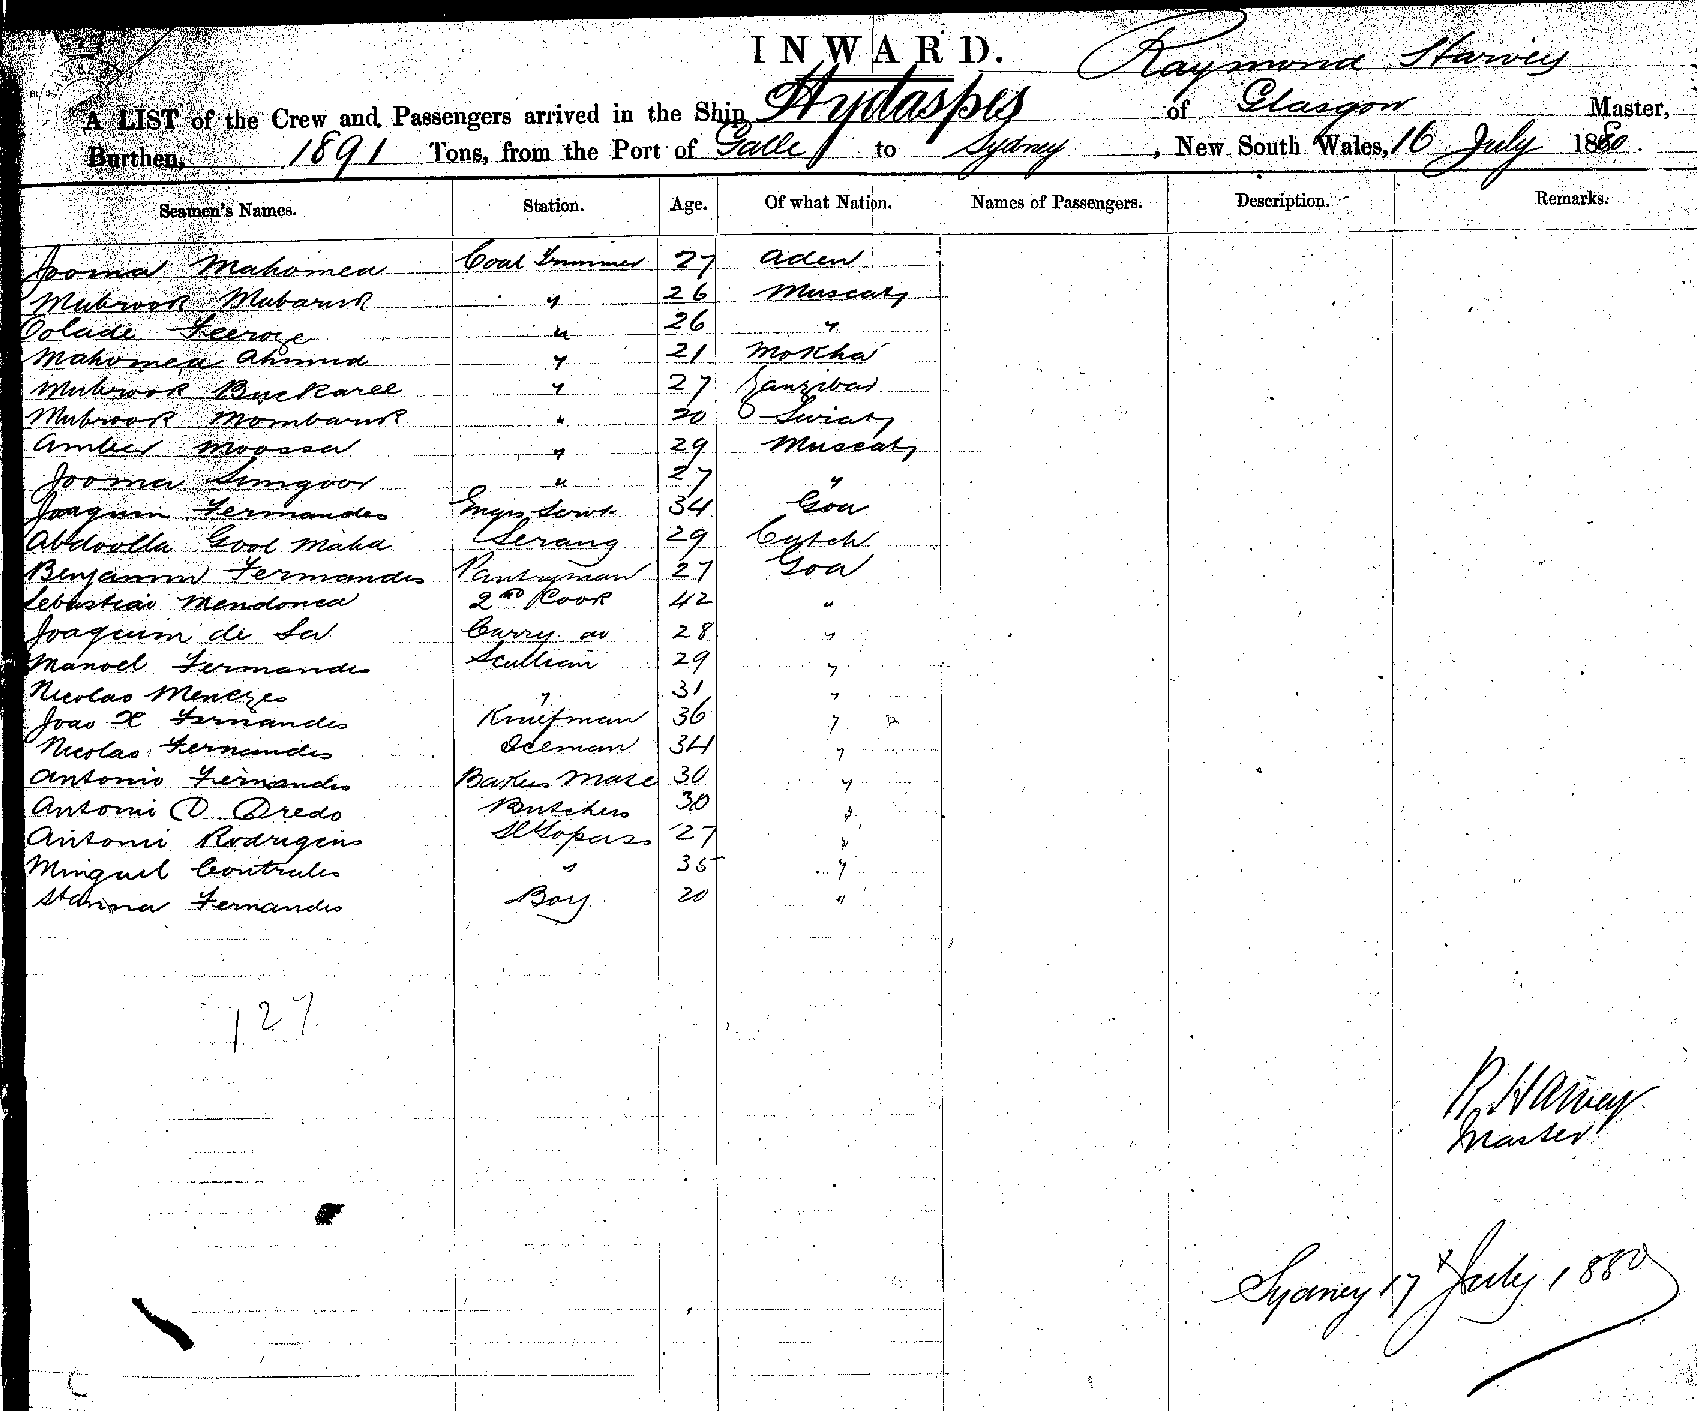 INWARD.
Raymond Harvey
A LIST of the Crew and Passengers arrived in the Ship Hydaspes of Glasgow Master,
Burthen, 1891 Tons, from the Port of Galle to Sydney, New South Wales, 16 July 1880.
Seamen's Names. Station. Age. Of what Nation. Names of Passengers. Description. Remarks.
Jooma Mahomed Coal Trimmer 27 Aden
Mubrook Mubaruk " 26 Muscat
Feeroze " 26 "
Mahomed Ahmed " 21 Mokha
Mubrook Buckaree " 27 Zanzibar
Mubrook Mombaruk " 20
Amber Moossa " 29 Muscat
Jooma " 27 "
Joaquim Fernandes Engrs Servt 34 Goa
Abdoolla Gool Mahd Serang 29 Cutch
Benjamin Fernandes Pantryman 27 Goa
Sebastiao Mendonca 2nd Cook 42 "
Joaquim de Sa Curry do 28 "
Manoel Fernandes Scullian 29 "
Nicolas Menezes " 31 "
Joao X Fernandes Knifeman 36 "
Nicolas Fernandes Iceman 34 "
Antonio Fernandes Bakers Mate 30 "
Antonio D Butchers 30 "
Antoni Rodrigues 27 "
Minguel " 35 "
Fernandes Boy 20 "
127
R. Harvey
Master
Sydney 17th July 1880